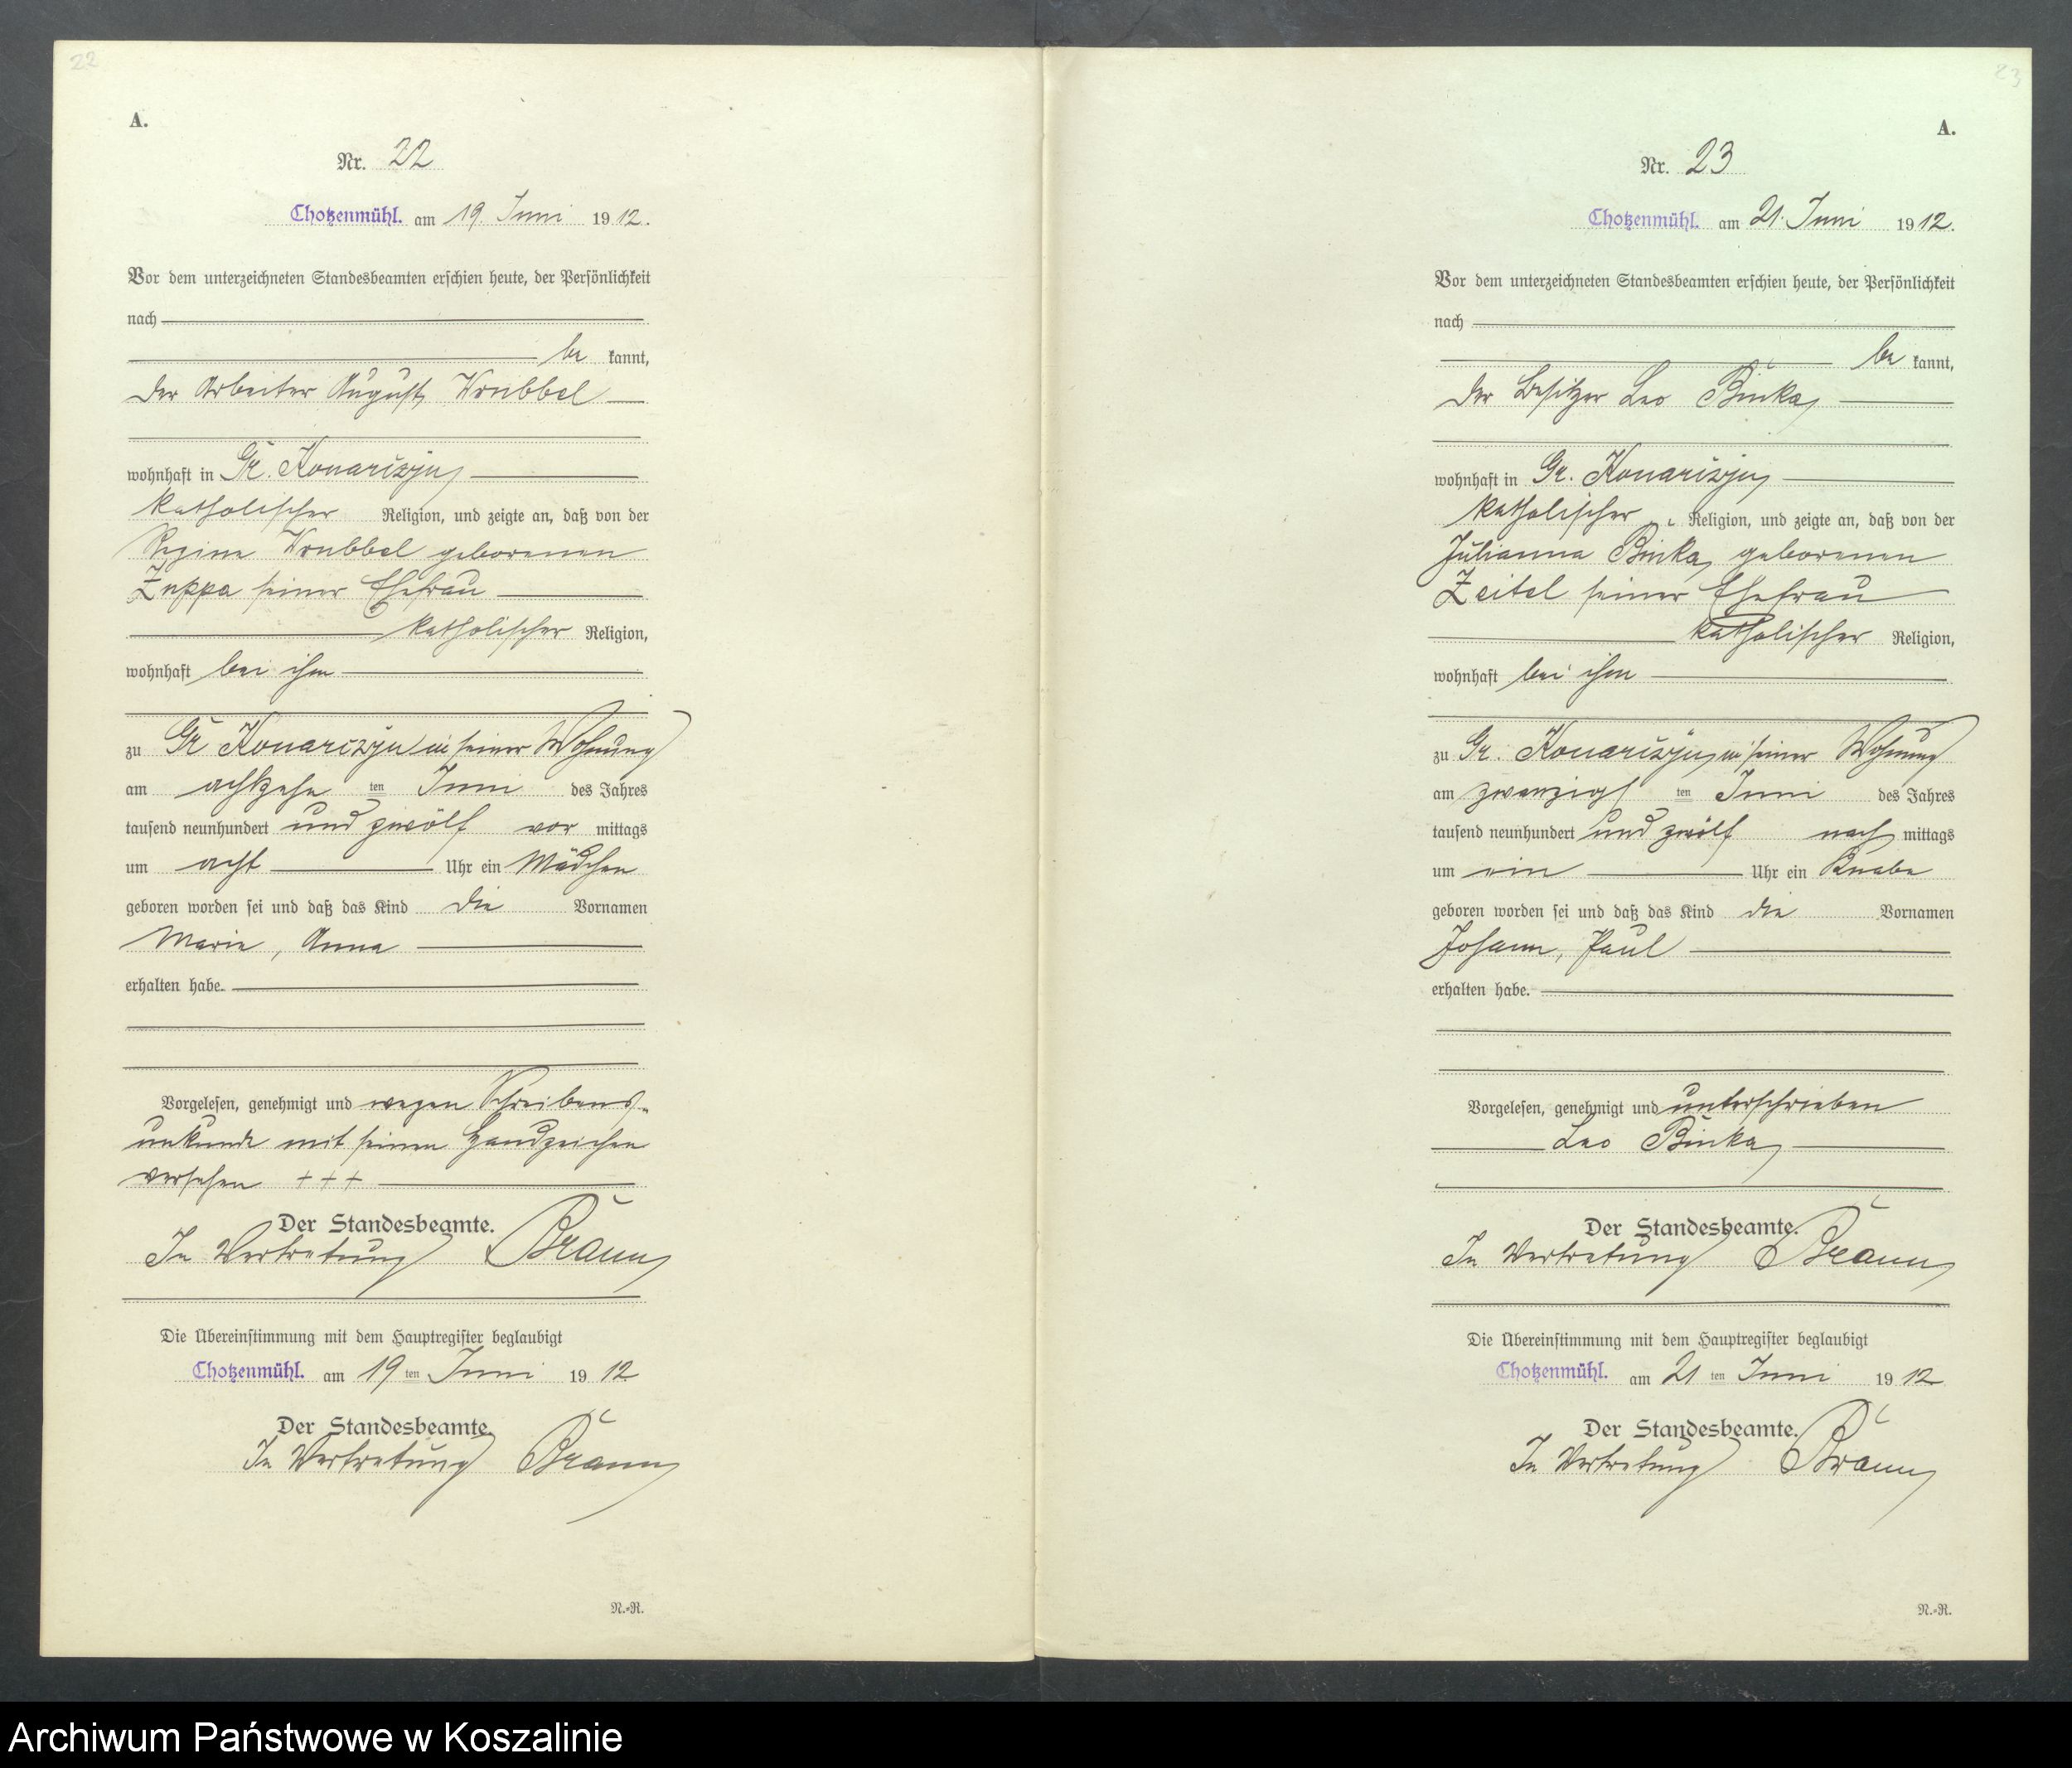 22
A.
Nr. 22
Chotzenmühl. am 19. Juni 1912.
Vor dem unterzeichneten Standesbeamten erschien heute, der Persönlichkeit
nach
be kannt,
der Arbeiter August Wrubbel
wohnhaft in Gr. Konarczyn
katholischer Religion, und zeigte an, daß von der
Regina Wrubbel geborenen
Zuppa seiner Ehefrau
katholischer Religion,
wohnhaft bei ihm
zu Gr Konarczyn in seiner Wohnung
am achtzehn ten Juni des Jahres
tausend neunhundert und zwölf vor mittags
um acht Uhr ein Mädchen
geboren worden sei und daß das Kind die Vornamen
Marie, Anna
erhalten habe.
Vorgelesen, genehmigt und wegen Schreibens-
unkunde mit seinem Handzeichen
versehen +++
Der Standesbeamte.
In Vertretung Braun
Die Übereinstimmung mit dem Hauptregister beglaubigt
Chotzenmühl. am 19 ten Juni 1912
Der Standesbeamte.
In Vertretung Braun
N.-R.
23
A.
Nr. 23
Chotzenmühl. am 21. Juni 1912.
Vor dem unterzeichneten Standesbeamten erschien heute, der Persönlichkeit
nach
be kannt,
der Besitzer Leo Binka
wohnhaft in Gr. Konarczyn
katholischer Religion, und zeigte an, daß von der
Julianna Binka geborenen
Zeitel seiner Ehefrau
katholischer Religion,
wohnhaft bei ihm
zu Gr. Konarczyn in seiner Wohnung
am zwanzigs ten Juni des Jahres
tausend neunhundert und zwölf nach mittags
um ein Uhr ein Knabe
geboren worden sei und daß das Kind die Vornamen
Johann, Paul
erhalten habe.
Vorgelesen, genehmigt und unterschrieben
Leo Binka
Der Standesbeamte.
In Vertretung Braun
Die Übereinstimmung mit dem Hauptregister beglaubigt
Chotzenmühl. am 21 ten Juni 1912
Der Standesbeamte.
In Vertretung Braun
N.-R.
Archiwum Państwowe w Koszalinie